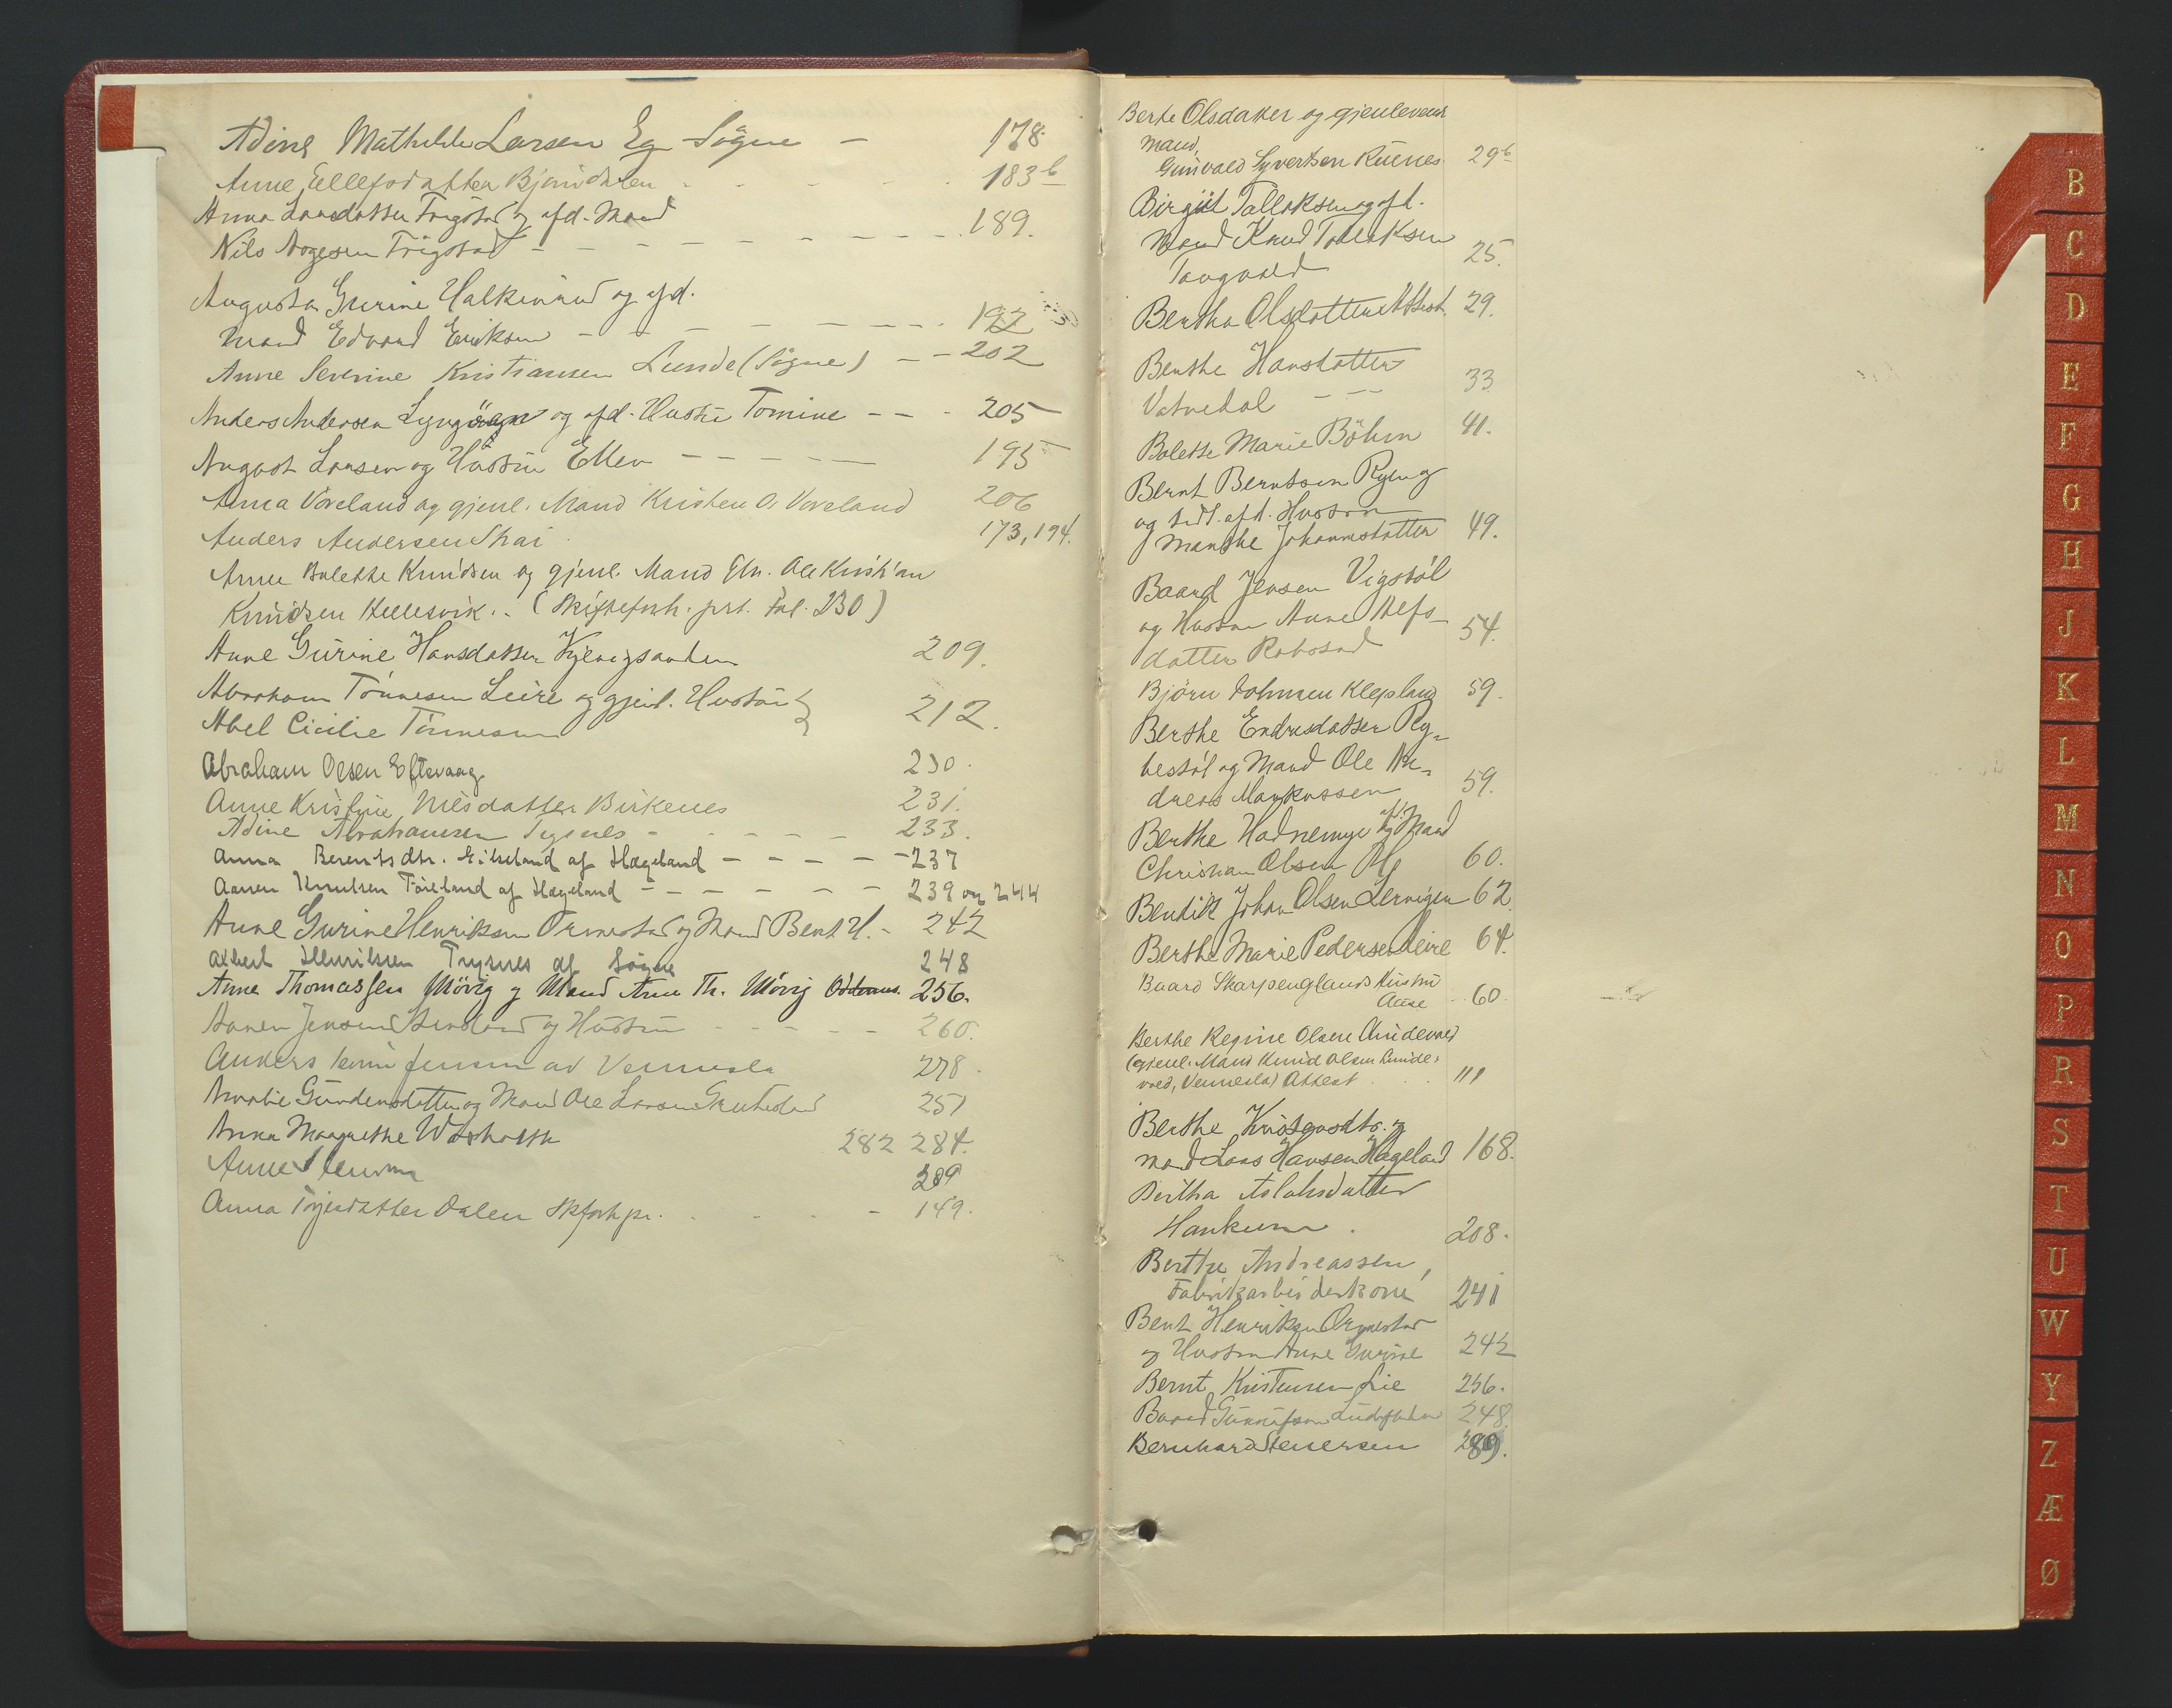 Adine Mathilde Larsen Eg Søgne – 178.
Anne Ellefsdatter Bjørndalen - - - - 183b
Anna Larsdatter Trygstad og afd. Mand
Nils Aagesen Trygstad - - - - - - - - 189.
Augusta Gurine Halkinrud og afd.
Mand Edvard Eriksen - - - - - - - 192
Anne Severine Kristiansen Lunde (Søgne) - - 202
Anders Andersen og afd. Hustru Tomine - - - 205
August Larsen og Hustru Ellen - - - - - 195
Anna Voreland og gjenl. Mand Kristen O. Voreland 206
Anders Andersen Strai 173, 194.
Anne Bolette Knudsen og gjenl. Mand Ole Kristian
Knudsen Hellesvik. - (Skifteforh. prt. Fol. 230)
Anne Gurine Hansdatter 209.
Abraham Tønnesen Leire og gjenl. Hustru
Abel Cicilie Tønnesen 212.
Abraham Olsen Eftevaag 230.
Anne Kristine Nilsdatter Birkenes 231.
Adine Abrahamsen - - - - - 233.
Anna Berentsdtr. Eikeland af Hægeland - - - - - 237
Aanen Knutsen Føreland af Hægeland - - - - - - 239 og 244
Anne Gurine Henriksen Ormestad og Mand Bent H. - 242
Albert Henriksen Trysnes af Søgne 248
Anne Thomassen Møvig og Mand Arne Th. Møvig Oddernes. 256.
Aanen Jensen og Hustru - - - - - 260.
Anders Jensen av Vennesla 278.
Amalie Gundersdatter og Mand Ole Larsen 251
Anna Margrethe 282 284.
Anne 289
Anna Torjusdatter Dalen Skforhpr. - - - - 149.
Berte Olsdatter og gjenlevend
Mand,
Gunvald Syvertsen Kuenes 29b
Birgit Tallaksen og afd.
Mand Knud Tallaksen
Tangvald 25.
Bertha Olsdatter 29.
Berthe Hansdatter
Vatnedal - - 33
Bolette Marie Böhm 41.
Bernt Berntsen Ryen og
og tidl. afd. Hustru
Marthe Johannesdatter 49.
Baard Jensen Vigstøl
og Hustru Anne Alefs-
datter Robstad 54.
Björn Salvesen Klepsland 59.
Berthe Endresdatter Ry-
bestøl og Mand Ole An-
dreas Markussen 59.
Berthe Hadnemyr og afd. Mand
Christian Olsen 60.
Bendik Johan Olsen Lervigen 62.
Berthe Marie Pedersen Leire 64.
Baard Skarpenglands Hustru
Aase - 60.
Berthe Regine Olsen Lindevold
(gjenl. Mand Knud Olsen Linde-
vold, Vennesla) Attest . . . 111
Berthe Kristensdtr. og
Mand Lars Hansen Hægeland 168.
Bertha Aslaksdatter
Haukum . 208.
Berthe Andreassen,
Fabrikarbeiderkone 241
Bent Henriksen Ormestad
og Hustru Anne Gurine 242
Bernt Kristensen Lie 256.
Baard Gunnufsen 248.
Bernhard Steversen 289.
B
C
D
E
F
G
H
J
K
L
M
N
O
P
R
S
T
U
W
Y
Z
Æ
Ø